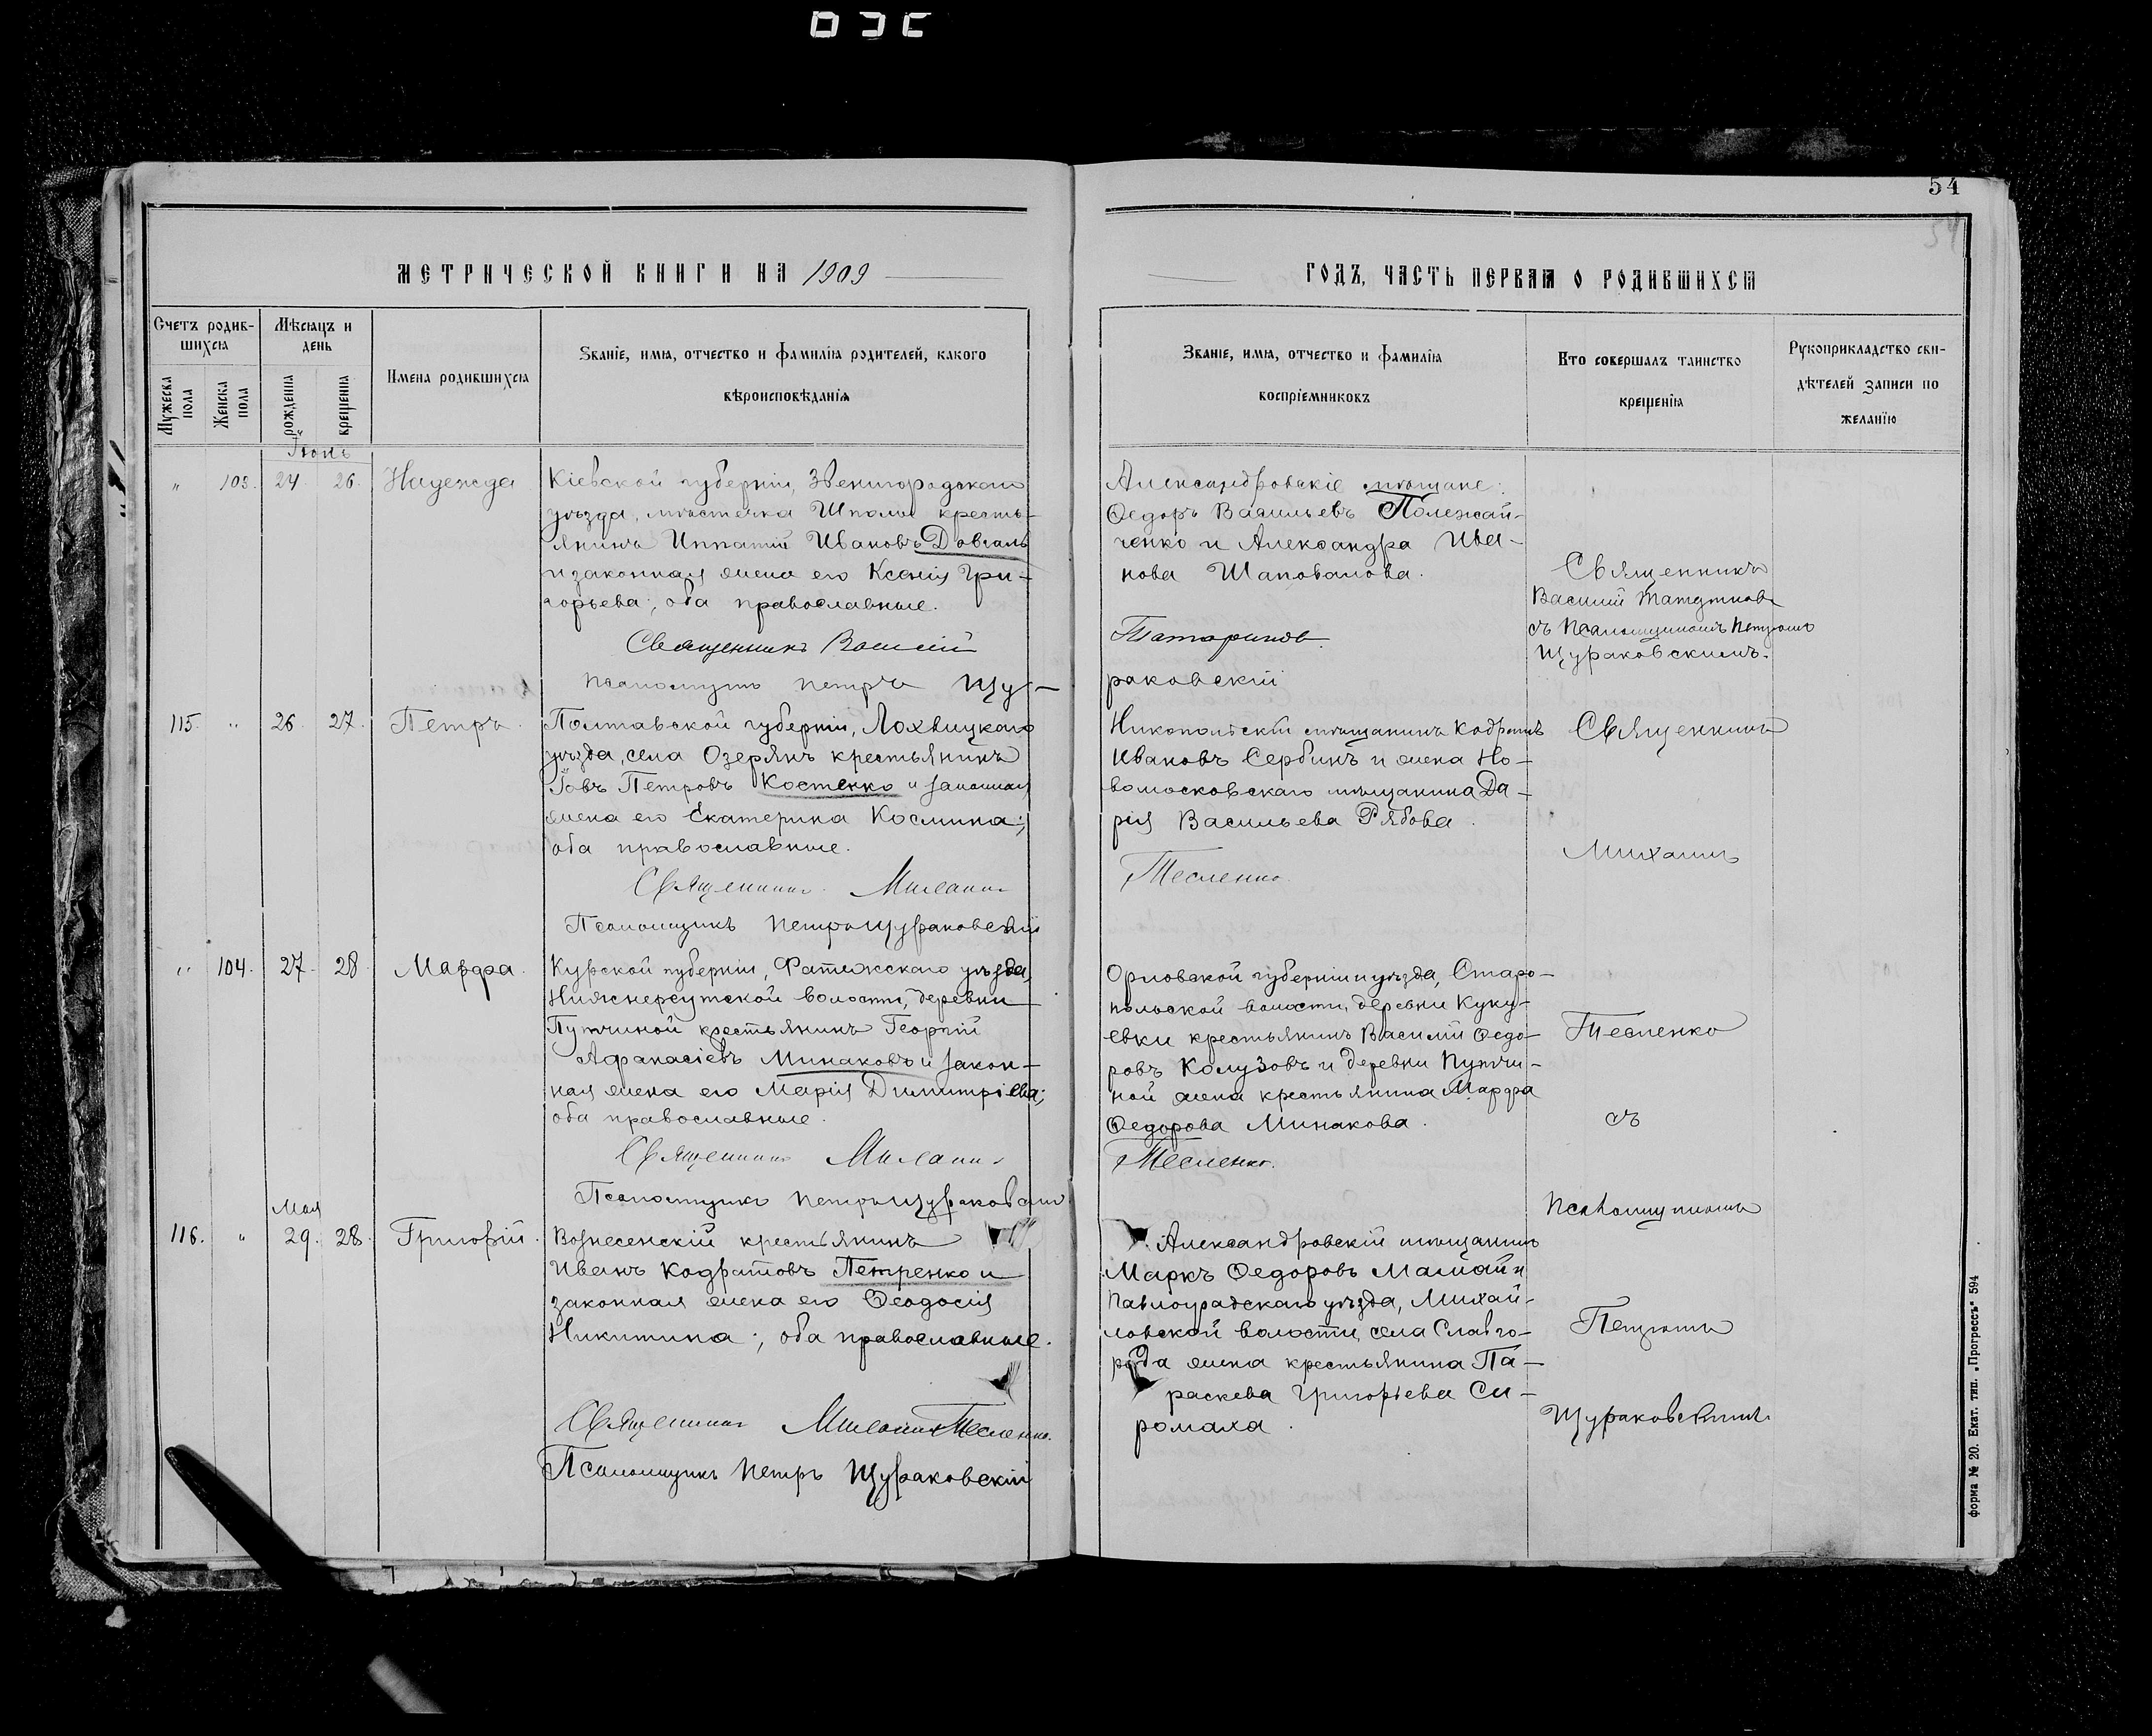 54
МЕТРИЧЕСКОЙ КНИГИ НА 1909
ГОДЪ, ЧАСТЬ ПЕРВАЯ О РОДИВШИХСЯ
Счетъ родив-
шихся
Мужеска пола
Женска пола
Мѣсяцъ и
день
рожденія
крещенія
Имена родившихся
Званіе, имя, отчество и фамилія родителей, какого
вѣроисповѣданія
Званіе, имя, отчество и фамилія
воспріемниковъ
Кто совершалъ таинство
крещенія
Рукоприкладство сви-
дѣтелей записи по
желанію
Іюнь
" 103. 24 26. Надежда
Кіевской губерніи, Звенигородскаго
уѣзда, мѣстечка Шполы кресть-
янинъ Ипатій Ивановъ Довгаль
и законная жена его Ксенія Гри-
горьева; оба православные.
Священникъ Василій
Псаломщикъ Петръ Щу-
Александровскіе мѣщане:
Ѳедоръ Васильевъ Полежай-
ченко и Александра Ива-
нова Шаповалова.
Татариновъ.
раковскій
Священникъ
Василій
съ Псаломщикомъ Петромъ
Щураковскимъ.
115. " 26. 27. Петръ.
Полтавской губерніи, Лохвицкаго
уѣзда, села Озерянъ крестьянинъ
Іовъ Петровъ Костенко и законная
жена его Екатерина Космина;
оба православные.
Священникъ Михаилъ
Псаломщикъ Петръ Щураковскій
Никопольскій мѣщанинъ Кодратъ
Ивановъ Сербинъ и жена Но-
вомосковскаго мѣщанина Да-
рія Васильева Рябова.
Тесленко.
Священникъ
Михаилъ
" 104. 27. 28 Марфа.
Курской губерніи, Фатежскаго уѣзда,
Нижнереутской волости, деревни
Путчиной крестьянинъ Георгій
Афанасіевъ Минаковъ и закон-
ная жена его Марія Димитріева;
оба православные.
Священникъ Михаилъ
Псаломщикъ Петръ Щураковскій
Орловской губерніи и уѣзда, Старо-
польской волости, деревни Куку-
евки крестьянинъ Василій Ѳедо-
ровъ Колузовъ и деревни Путчи-
ной жена крестьянина Марфа
Ѳедорова Минакова.
Тесленко.
Тесленко
съ
Псаломщикомъ
Мая
116. " 29. 28. Григорій.
Вознесенскій крестьянинъ
Иванъ Кодратовъ Петренко и
законная жена его Ѳеодосія
Никитина; оба православные.
Священникъ Михаилъ Тесленко.
Псаломщикъ Петръ Щураковскій
Александровскій мѣщанинъ
Маркъ Ѳедоровъ Мамай и
Павлоградскаго уѣзда, Михай-
ловской волости, села Славго-
рода жена крестьянина Па-
раскева Григорьева Си-
ромаха.
Петромъ
Щураковскимъ.
форма № 20. Екат. тип. „Прогрессъ" 594